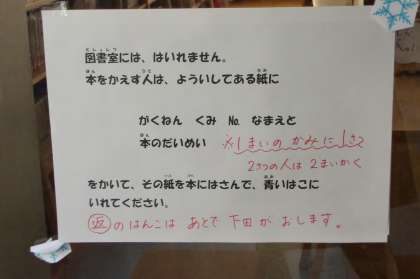 図書室には、はいれません。
本をかえす人は、よういしてある紙に
がくねん　くみ　№　なまえと
本のだいめい　※1まいのかみに1さつ
2さつの人は2まいかく
をかいて、その紙を本にはさんで、青いはこに
いれてください。
返のはんこは　あとで　下田が　おします。